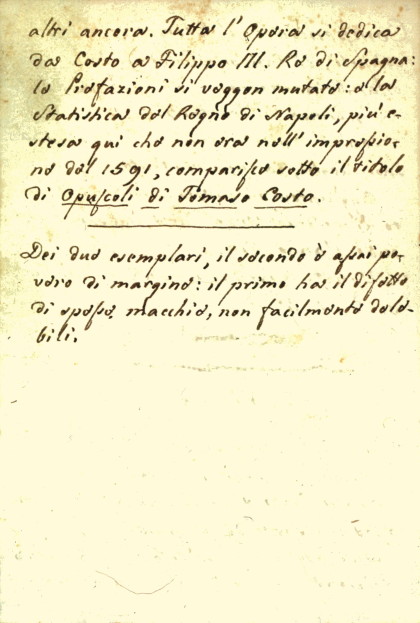 altri ancora. Tutta l'Opera si dedica
da Costo a Filippo III. Re di Spagna:
le Prefazioni si veggon mutate: e la
Statistica del Regno di Napoli, più e-
stesa qui che non era nell'impressio-
ne del 1591, comparisce sotto il titolo
di Opuscoli di Tomaso Costo.
Dei due esemplari, il secondo è assai po-
vero di margine: il primo ha il difetto
di spesse macchie, non facilmente dele-
bili.